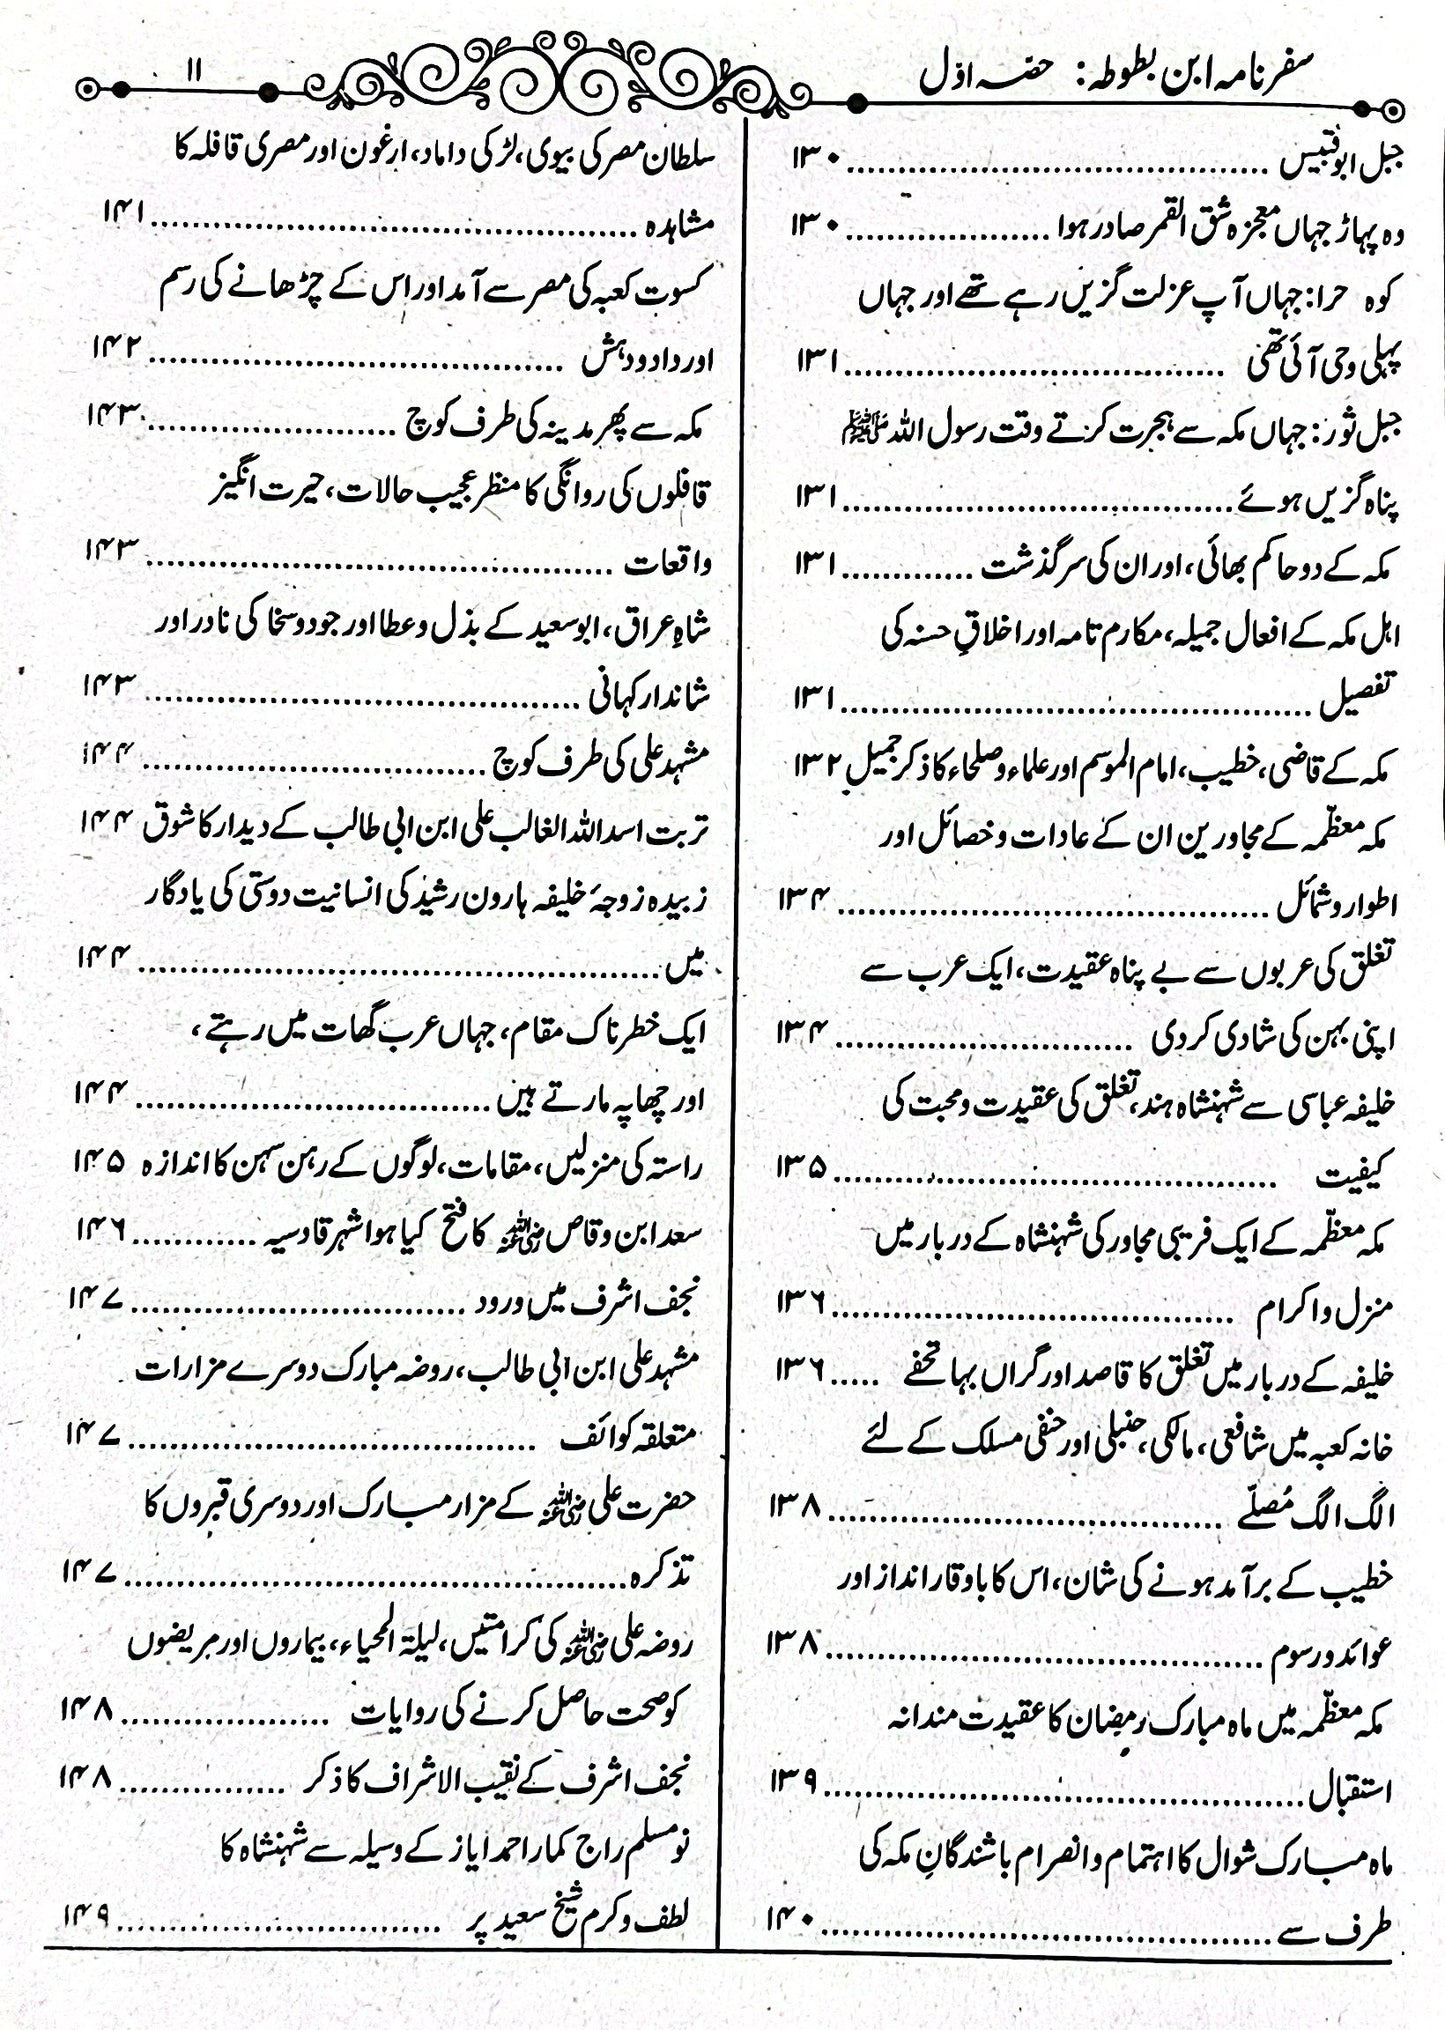 سفرنامہ ابن بطوطہ: حصہ اوّل
۱۱
جبل ابوقبیس ........................................ ۱۳۰
وہ پہاڑ جہاں معجزہ شق القمر صادر ہوا .................... ۱۳۰
کوہ حرا: جہاں آپ عزلت گزیں رہے تھے اور جہاں
پہلی وحی آئی تھی .................................... ۱۳۱
جبل ثور: جہاں مکہ سے ہجرت کرتے وقت رسول اللہ ﷺ
پناہ گزیں ہوئے ..................................... ۱۳۱
مکہ کے دو حاکم بھائی، اور ان کی سرگذشت ............. ۱۳۱
اہل مکہ کے افعال جمیلہ، مکارم تامہ اور اخلاقِ حسنہ کی
تفصیل ............................................. ۱۳۱
مکہ کے قاضی، خطیب، امام الموسم اور علماء و صلحاء کا ذکر جمیل ۱۳۲
مکہ معظّمہ کے مجاورین ان کے عادات و خصائل اور
اطوار و شمائل ......................................... ۱۳۴
تغلق کی عربوں سے بے پناہ عقیدت، ایک عرب سے
اپنی بہن کی شادی کر دی ............................. ۱۳۴
خلیفہ عباسی سے شہنشاہ ہند، تغلق کی عقیدت و محبت کی
کیفیت .......................................... ۱۳۵
مکہ معظّمہ کے ایک فریبی مجاور کی شہنشاہ کے دربار میں
منزل و اکرام ...................................... ۱۳۶
خلیفہ کے دربار میں تغلق کا قاصد اور گراں بہا تحفے ..... ۱۳۶
خانہ کعبہ میں شافعی، مالکی، حنبلی اور حنفی مسلک کے لئے
الگ الگ مُصلّے ...................................... ۱۳۸
خطیب کے برآمد ہونے کی شان، اس کا باوقار انداز اور
عوائد و رسوم .......................................... ۱۳۸
مکہ معظّمہ میں ماہ مبارک رمضان کا عقیدت مندانہ
استقبال .............................................. ۱۳۹
ماہ مبارک شوال کا اہتمام و انصرام باشندگانِ مکہ کی
طرف سے ........................................... ۱۴۰
سلطان مصر کی بیوی، لڑکی داماد، ارغون اور مصری قافلہ کا
مشاہدہ .............................................. ۱۴۱
کسوت کعبہ کی مصر سے آمد اور اس کے چڑھانے کی رسم
اور داد و دہش ....................................... ۱۴۲
مکہ سے پھر مدینہ کی طرف کوچ ........................ ۱۴۳
قافلوں کی روانگی کا منظر عجیب حالات، حیرت انگیز
واقعات ............................................ ۱۴۳
شاہِ عراق، ابوسعید کے بذل و عطا اور جود و سخا کی نادر اور
شاندار کہانی ......................................... ۱۴۳
مشہد علی کی طرف کوچ ................................ ۱۴۴
تربت اسد اللہ الغالب علی ابن ابی طالب کے دیدار کا شوق ۱۴۴
زبیدہ زوجۂ خلیفہ ہارون رشید کی انسانیت دوستی کی یادگار
میں ................................................. ۱۴۴
ایک خطرناک مقام، جہاں عرب گھات میں رہتے،
اور چھاپہ مارتے ہیں .................................. ۱۴۴
راستہ کی منزلیں، مقامات، لوگوں کے رہن سہن کا اندازہ ۱۴۵
سعد ابن وقاص رضی اللہ عنہ کا فتح کیا ہوا شہر قادسیہ ............ ۱۴۶
نجف اشرف میں ورود ................................ ۱۴۷
مشہد علی ابن ابی طالب، روضہ مبارک دوسرے مزارات
متعلقہ کوائف ....................................... ۱۴۷
حضرت علی رضی اللہ عنہ کے مزار مبارک اور دوسری قبروں کا
تذکرہ ............................................... ۱۴۷
روضہ علی رضی اللہ عنہ کی کرامتیں، لیلۃ المحیاء، بیماروں اور مریضوں
کو صحت حاصل کرنے کی روایات .................... ۱۴۸
نجف اشرف کے نقیب الاشراف کا ذکر ................ ۱۴۸
نو مسلم راج کمار احمد ایاز کے وسیلہ سے شہنشاہ کا
لطف و کرم شیخ سعید پر .............................. ۱۴۹